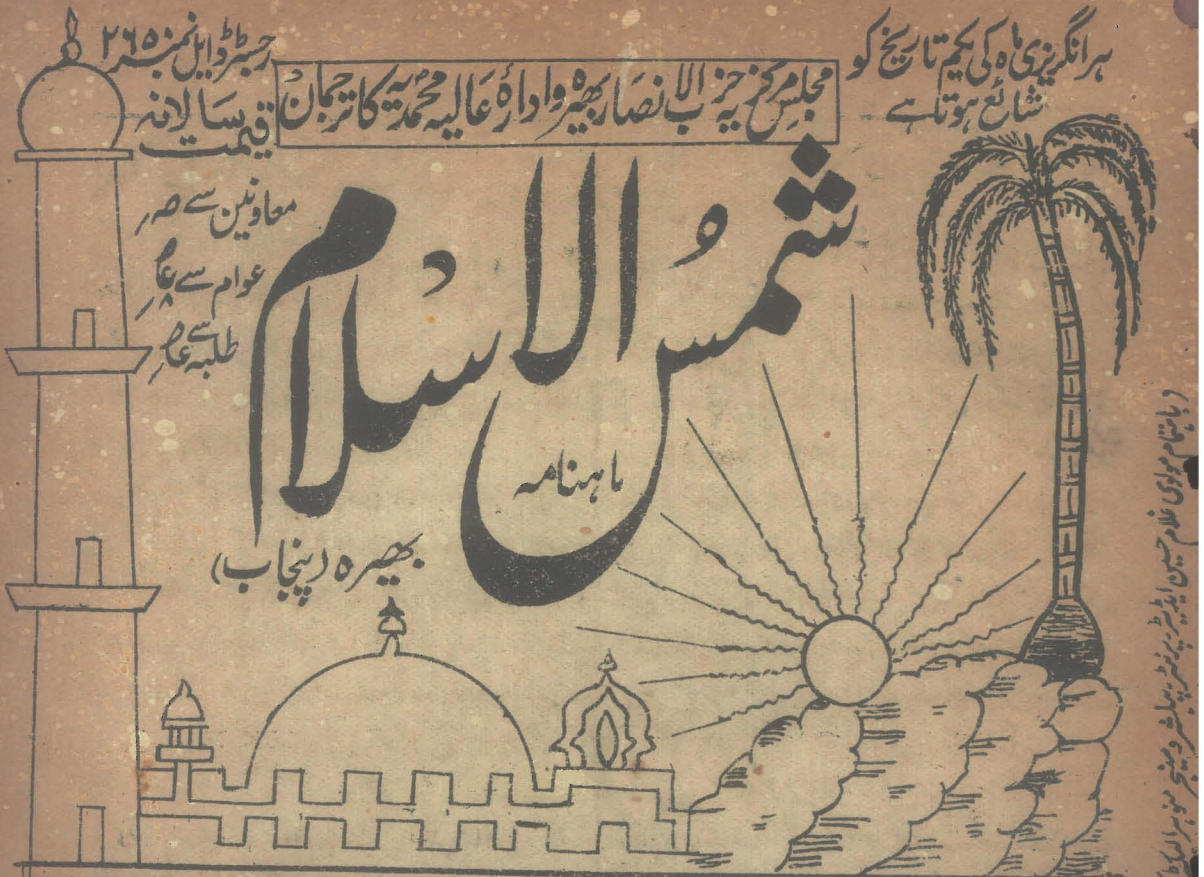 ہر انگریزی ماہ کی یکم تاریخ کو
شائع ہوتا ہے
مجلس مرکزیہ حزب الانصار بھیرہ و ادارۂ عالیہ محمدیہ کا ترجمان
رجسٹرڈ ایل نمبر ۲۶۵۰
قیمت سالانہ
معاونین سے
عوام سے
طلبہ سے
شمس الاسلام
ماہنامہ
بھیرہ (پنجاب)
(باہتمام مولوی غلام حسین ایڈیٹر پرنٹر پبلشر و مینیجر منوہر